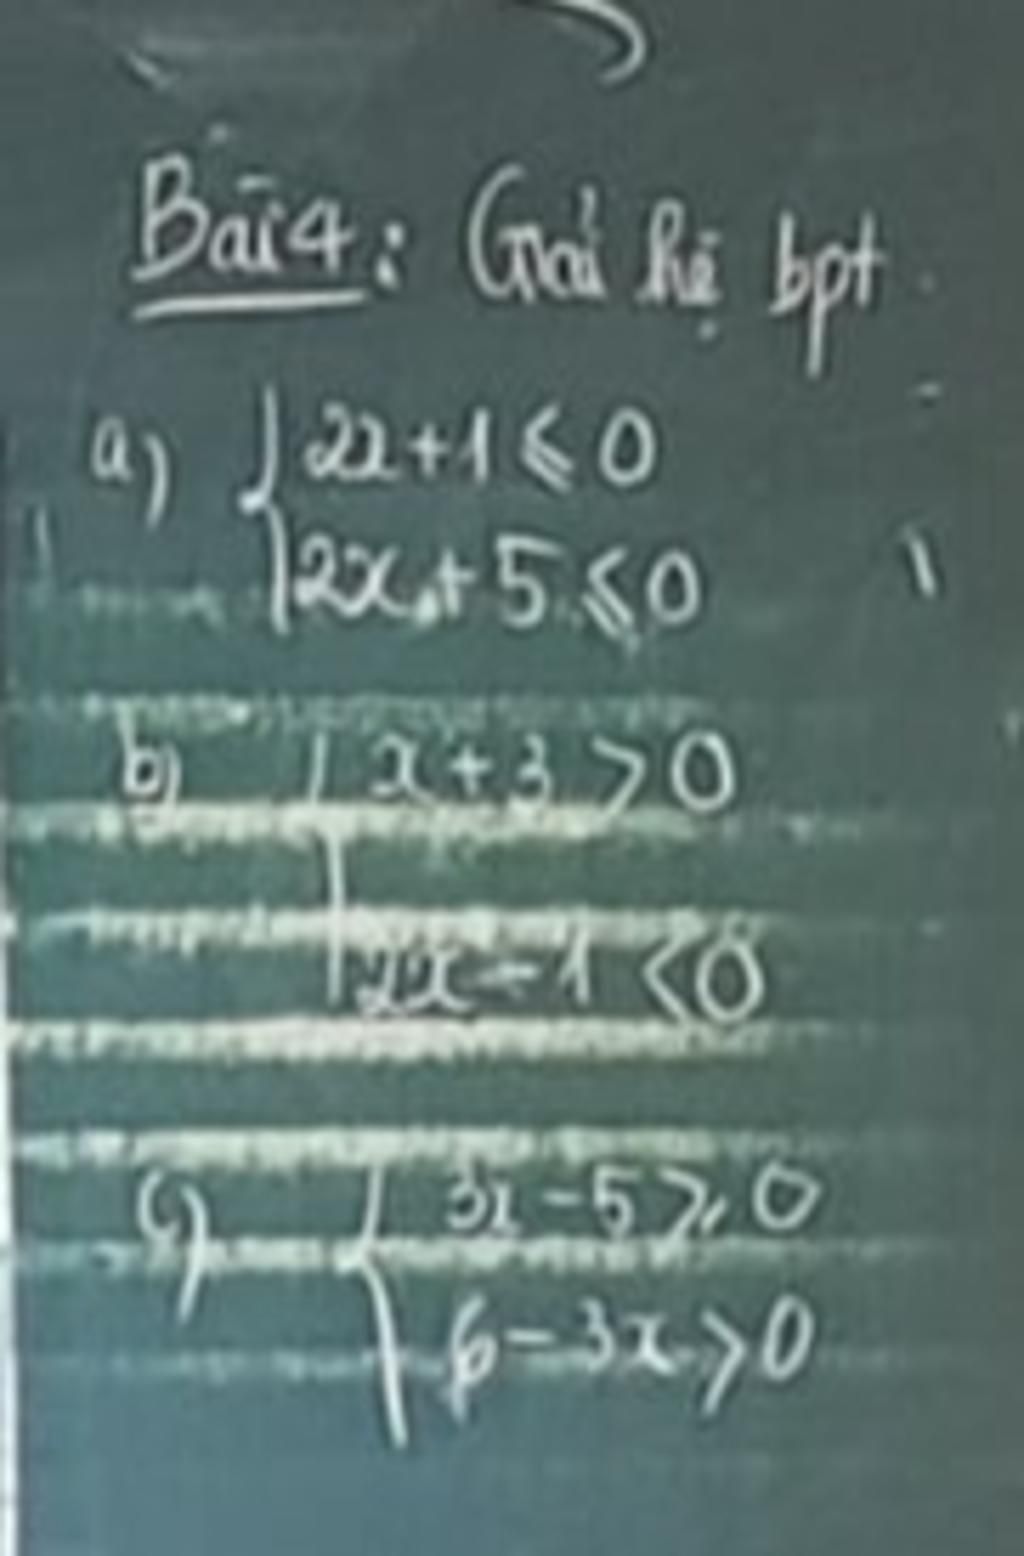 Bài 4: Giải hệ bpt
a) { 2x+1 ⩽ 0
2x+5 ⩽ 0
b) { x+3 > 0
2x-1 < 0
c) { 3x-5 ⩾ 0
6-3x > 0